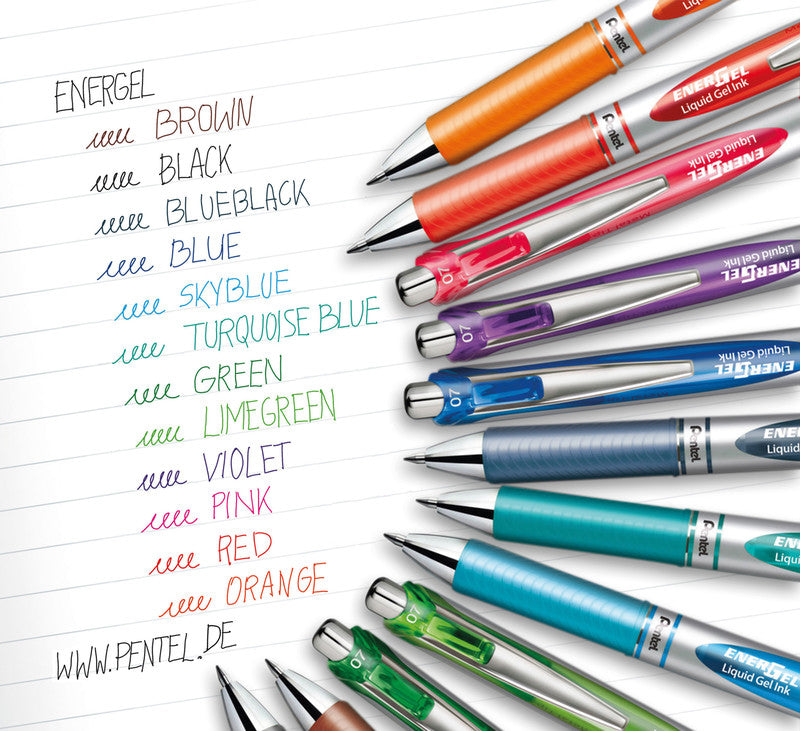 ENERGEL
BROWN
BLACK
BLUEBLACK
BLUE
SKYBLUE
TURQUOISE BLUE
GREEN
LIMEGREEN
VIOLET
PINK
RED
ORANGE
WWW.PENTEL.DE
Pentel
Pentel
ENERGEL
Liquid Gel Ink
07
ENERGEL
Liquid Gel Ink
07
ENERGEL
Liquid Gel Ink
07
ENERGEL
Liquid Gel Ink
Pentel
ENE
Liquid
Pentel
ENER
Liqui
Pentel
ENERGEL
Liquid Gel Ink
07
07